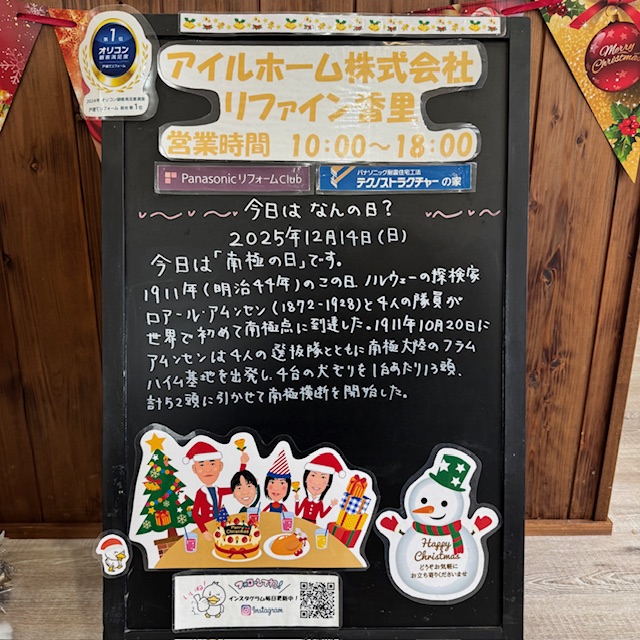 第1位
オリコン
顧客満足度
戸建てリフォーム
2024年 オリコン顧客満足度調査
戸建てリフォーム 総合 第1位
アイルホーム株式会社
リファイン香里
営業時間 10:00〜18:00
Panasonic リフォームClub
パナソニック耐震住宅工法
テクノストラクチャーの家
今日は なんの日?
2025年12月14日(日)
今日は「南極の日」です。
1911年(明治44年)のこの日、ノルウェーの探検家
ロアール・アムンセン(1872-1928)と4人の隊員が
世界で初めて南極点に到達した。1911年10月20日に
アムンセンは4人の選抜隊とともに南極大陸のフラム
ハイム基地を出発し、4台の犬ゾリを1台あたり13頭、
計52頭に引かせて南極横断を開始した。
Merry Christmas
Merry Christmas
Happy
Christmas
どうぞお気軽に
お立ち寄りくださいませ
いいね!
フォローしてね!
インスタグラム毎日更新中!
Instagram